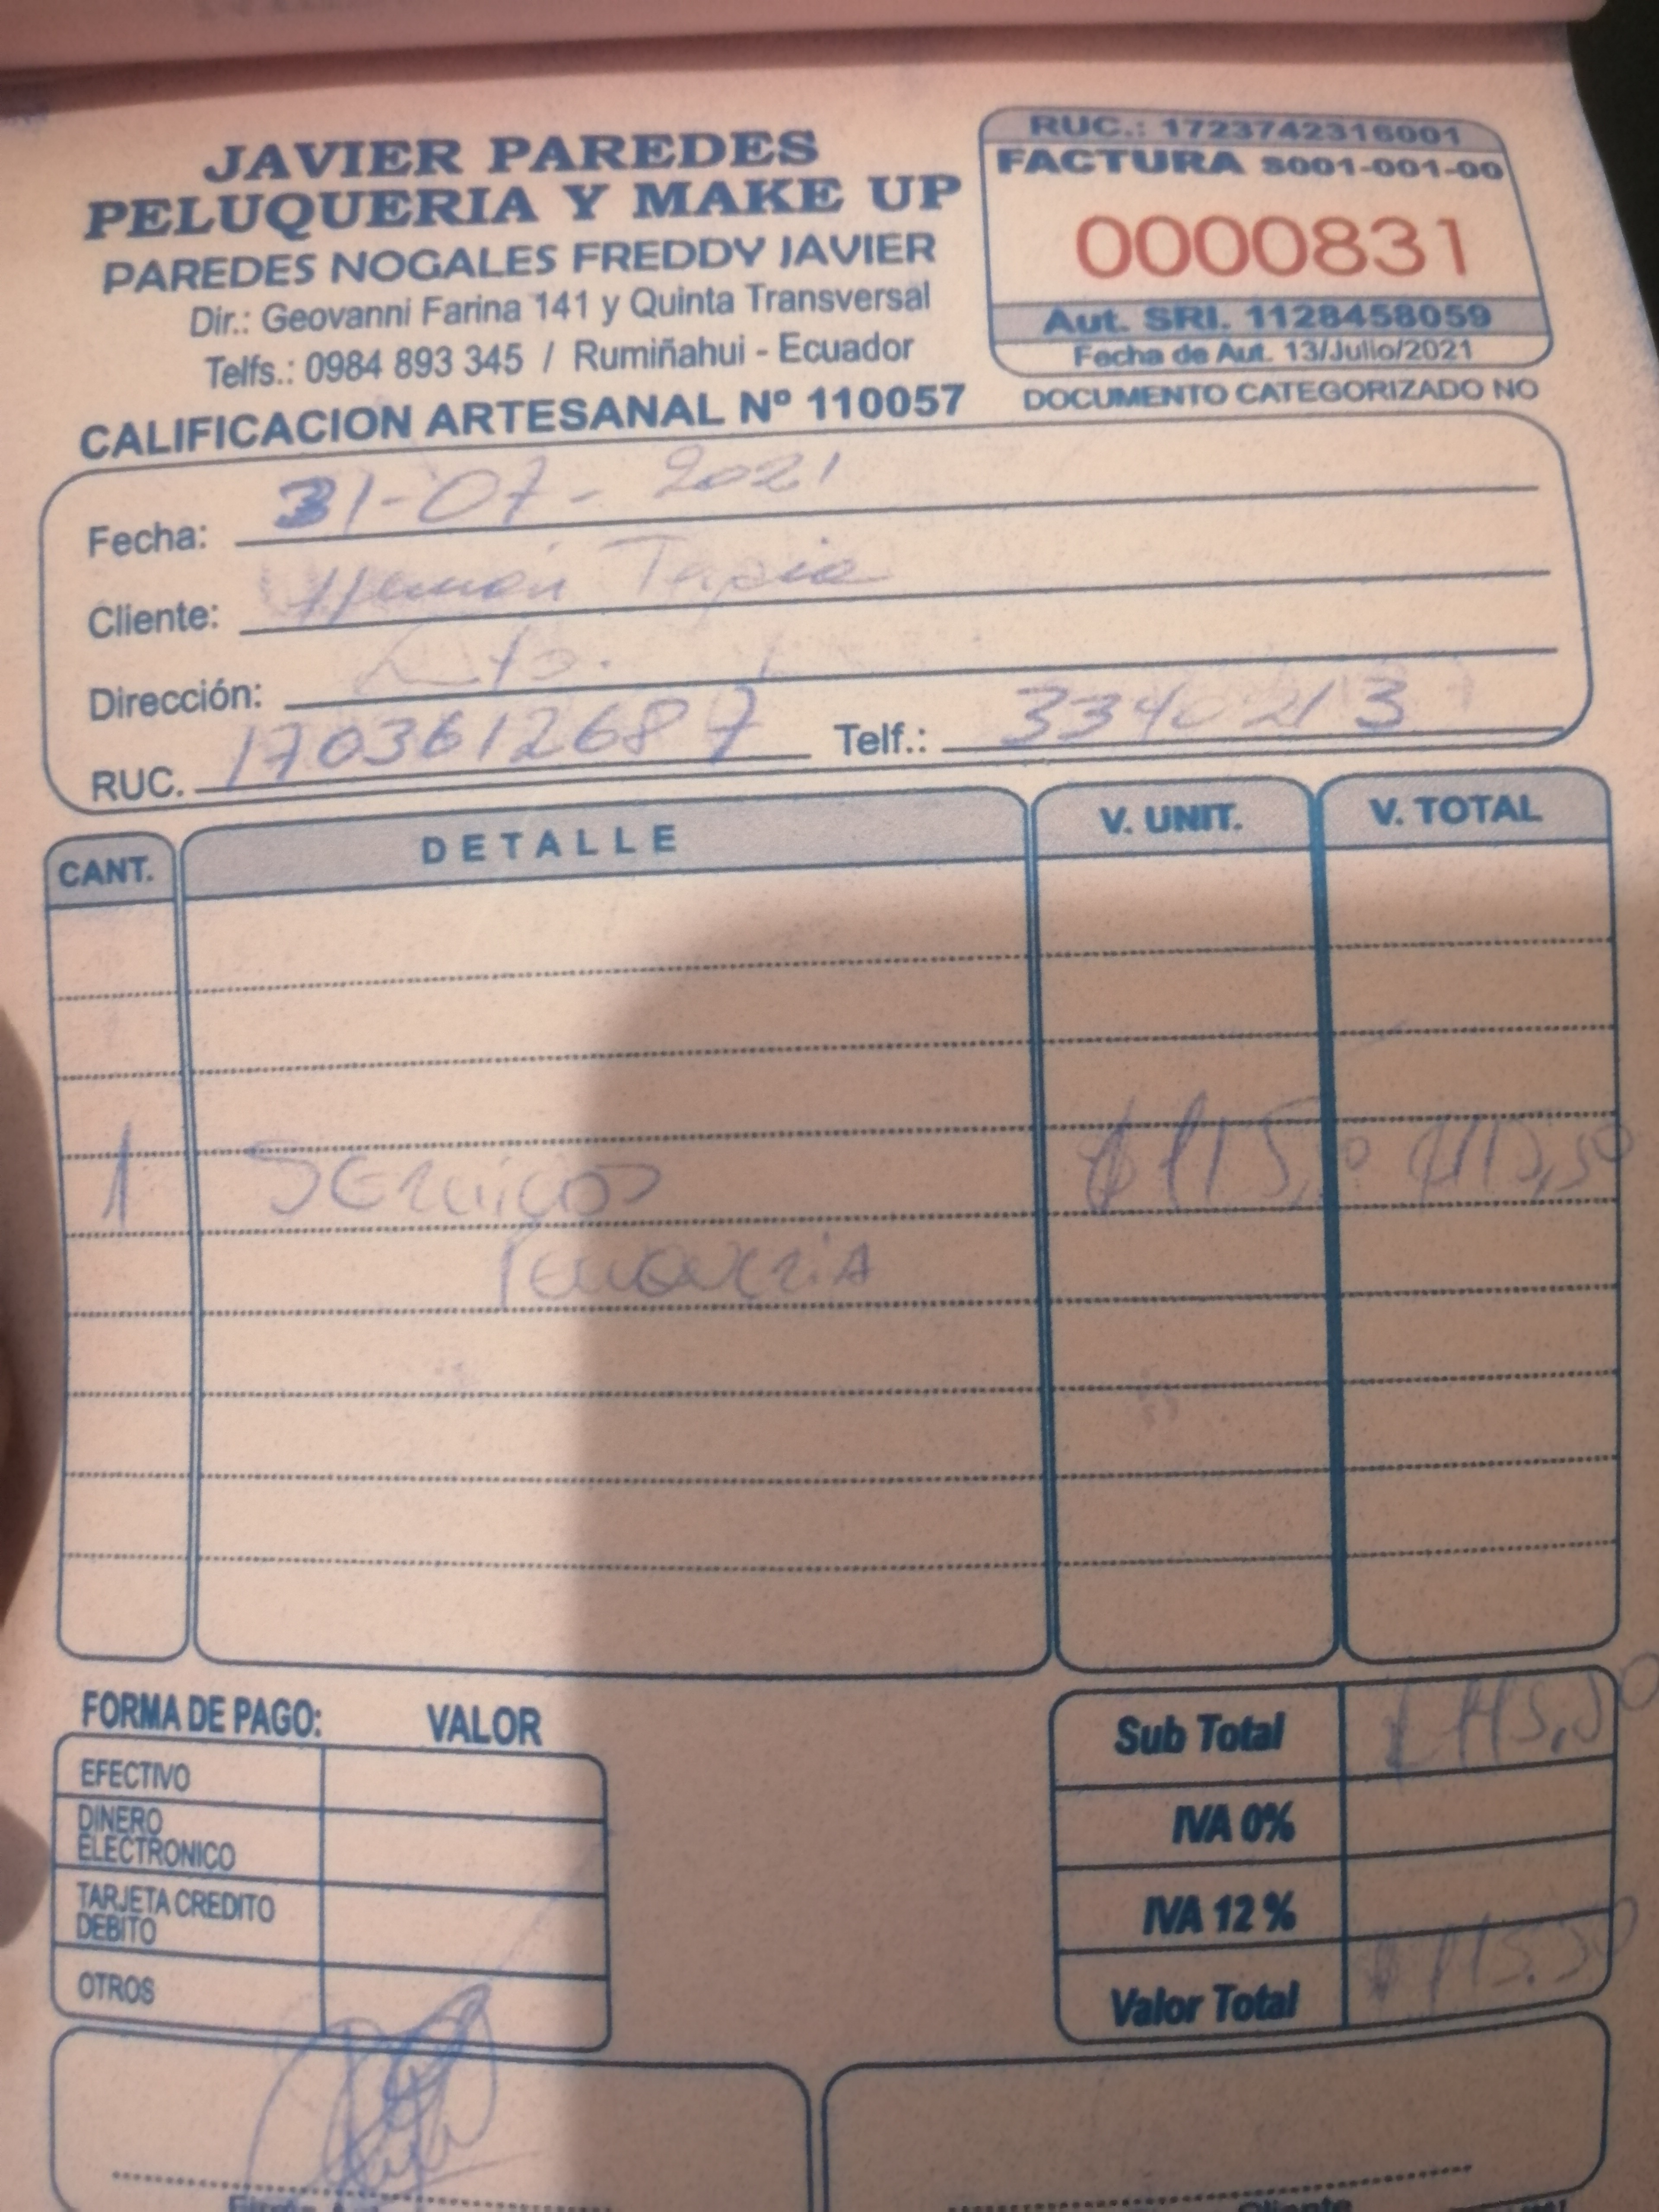 JAVIER PAREDES
PELUQUERIA Y MAKE UP
PAREDES NOGALES FREDDY JAVIER
Dir.: Geovanni Farina 141 y Quinta Transversal
Telfs.: 0984 893 345 / Rumiñahui - Ecuador
CALIFICACION ARTESANAL Nº 110057
RUC.: 1723742316001
FACTURA S001-001-00
0000831
Aut. SRI. 1128458059
Fecha de Aut. 13/Julio/2021
DOCUMENTO CATEGORIZADO NO
Fecha: 31-07-2021
Cliente: Hernán Tapia
Dirección:
RUC. 1703612687 Telf.: 3340213
CANT. DETALLE V. UNIT. V. TOTAL
1 Servicios $115,50 $115,50
Peluqueria
FORMA DE PAGO: VALOR
EFECTIVO
DINERO ELECTRONICO
TARJETA CREDITO DEBITO
OTROS
Sub Total $115,50
IVA 0%
IVA 12 %
Valor Total $115.50
Cliente